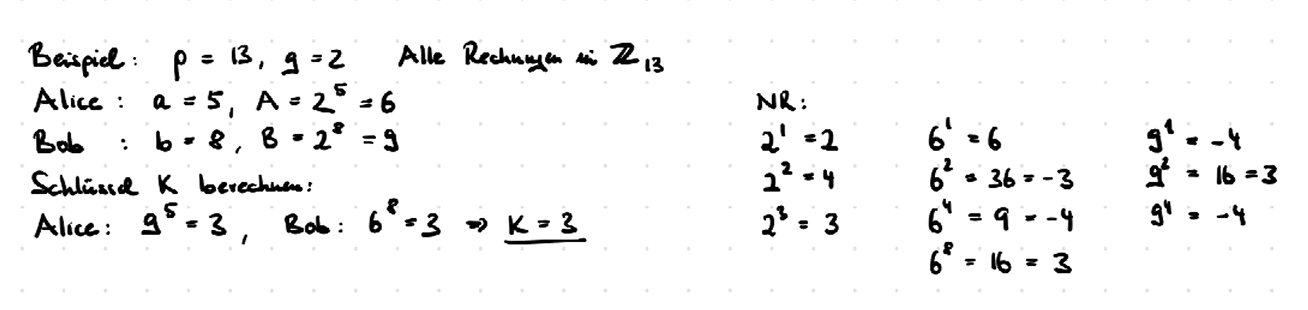 Beispiel: p = 13, g = 2 Alle Rechnungen in ℤ₁₃
Alice: a = 5, A = 2⁵ = 6
Bob : b = 8, B = 2⁸ = 9
Schlüssel K berechnen:
Alice: 9⁵ = 3, Bob: 6⁸ = 3 ⇒ K = 3
NR:
2¹ = 2
2² = 4
2³ = 3
6¹ = 6
6² = 36 = -3
6⁴ = 9 = -4
6⁸ = 16 = 3
9¹ = -4
9² = 16 = 3
9⁴ = -4